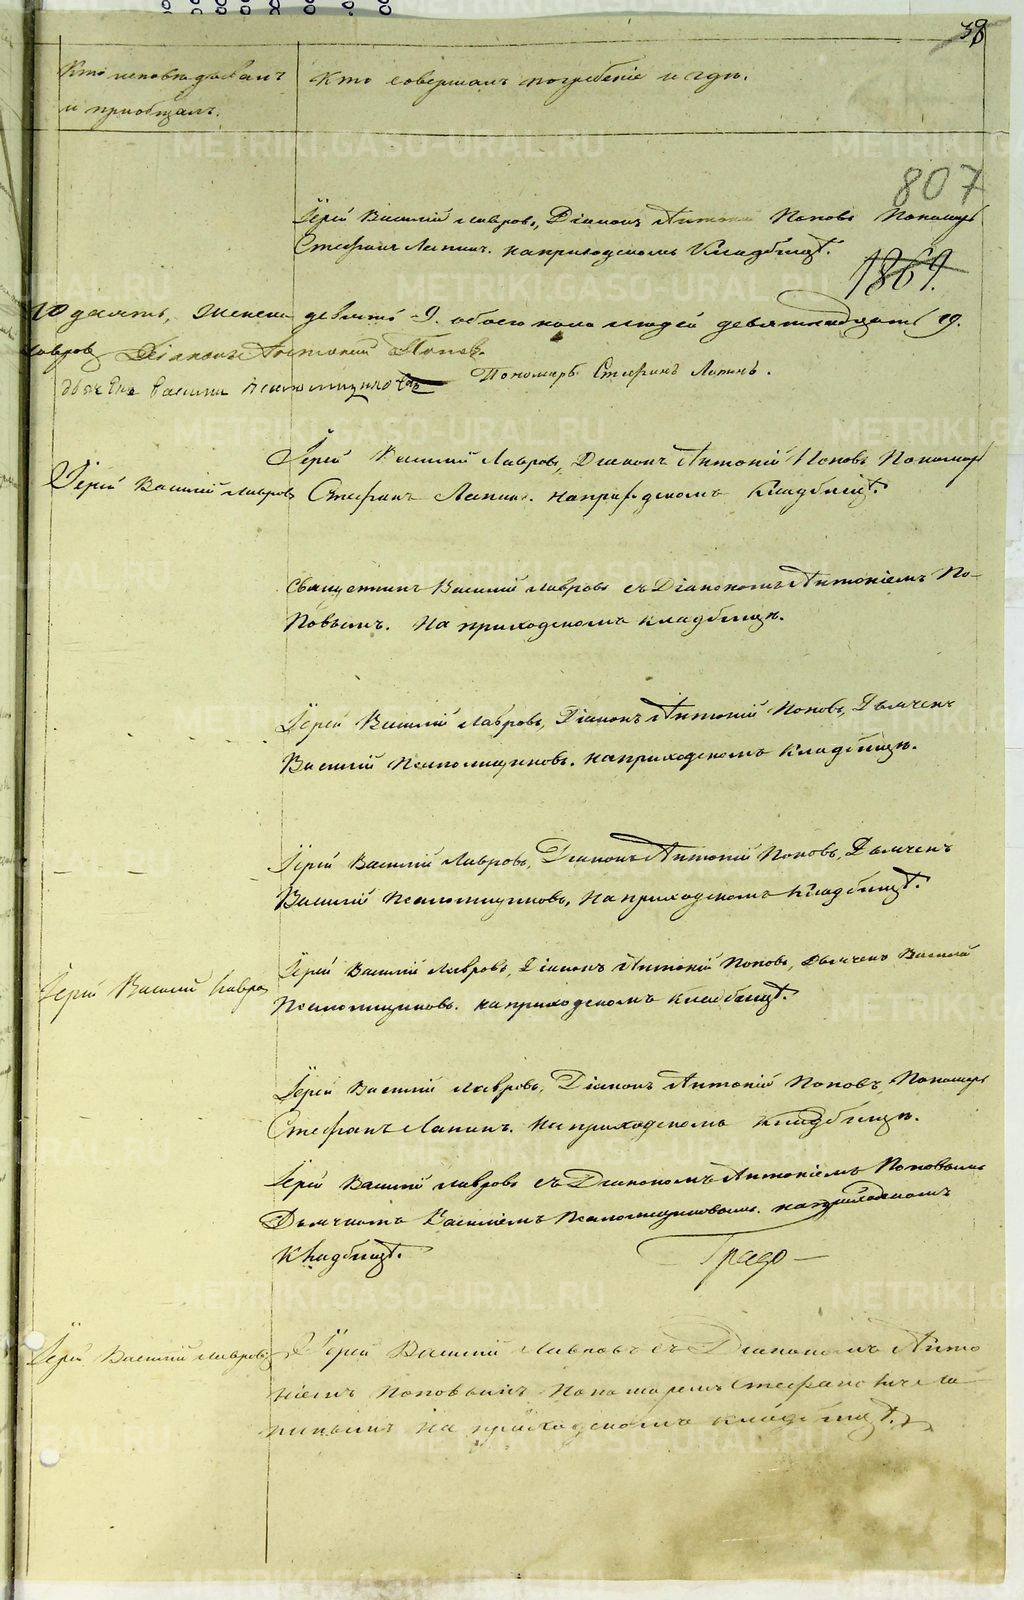 38
Кто исповѣдывалъ
и приобщалъ.
Кто совершалъ погребеніе и гдѣ.
807
Іерей Василій Лавровъ, Діаконъ Антоній Поповъ Пономарь
Стефанъ Лапинъ. на приходскомъ Кладбищѣ.
1869.
10 десять, женска девять 9. обоего пола людей девятнадцать 19.
Лавровъ Діаконъ Антоній Поповъ.
Дьячекъ Василій Псаломщиковъ Пономарь Стефанъ Лапинъ.
Іерей Василій Лавровъ, Діаконъ Антоній Поповъ Пономарь
Іерей Василій Лавровъ Стефанъ Лапинъ. на приходскомъ Кладбищѣ.
Священникъ Василій Лавровъ съ Діакономъ Антоніемъ По-
повымъ. На приходскомъ кладбищѣ.
Іерей Василій Лавровъ, Діаконъ Антоній Поповъ, Дьячекъ
Василій Псаломщиковъ. на приходскомъ Кладбищѣ.
Іерей Василій Лавровъ, Діаконъ Антоній Поповъ, Дьячекъ
Василій Псаломщиковъ, на приходскомъ Кладбищѣ.
Іерей Василій Лавровъ, Діаконъ Антоній Поповъ, Дьячекъ Василій
Іерей Василій Лавровъ Псаломщиковъ. на приходскомъ Кладбищѣ.
Іерей Василій Лавровъ, Діаконъ Антоній Поповъ, Пономарь
Стефанъ Лапинъ. На приходскомъ Кладбищѣ.
Іерей Василій Лавровъ съ Діакономъ Антоніемъ Поповымъ
Дьячкомъ Василіемъ Псаломщиковымъ. на приходскомъ
Кладбищѣ.
Іерей Василій Лавровъ Іерей Василій Лавровъ съ Діакономъ Анто
ніемъ Поповымъ Пономаремъ Стефаномъ Ла
пинымъ на приходскомъ кладбищѣ.
METRIKI.GASO-URAL.RU